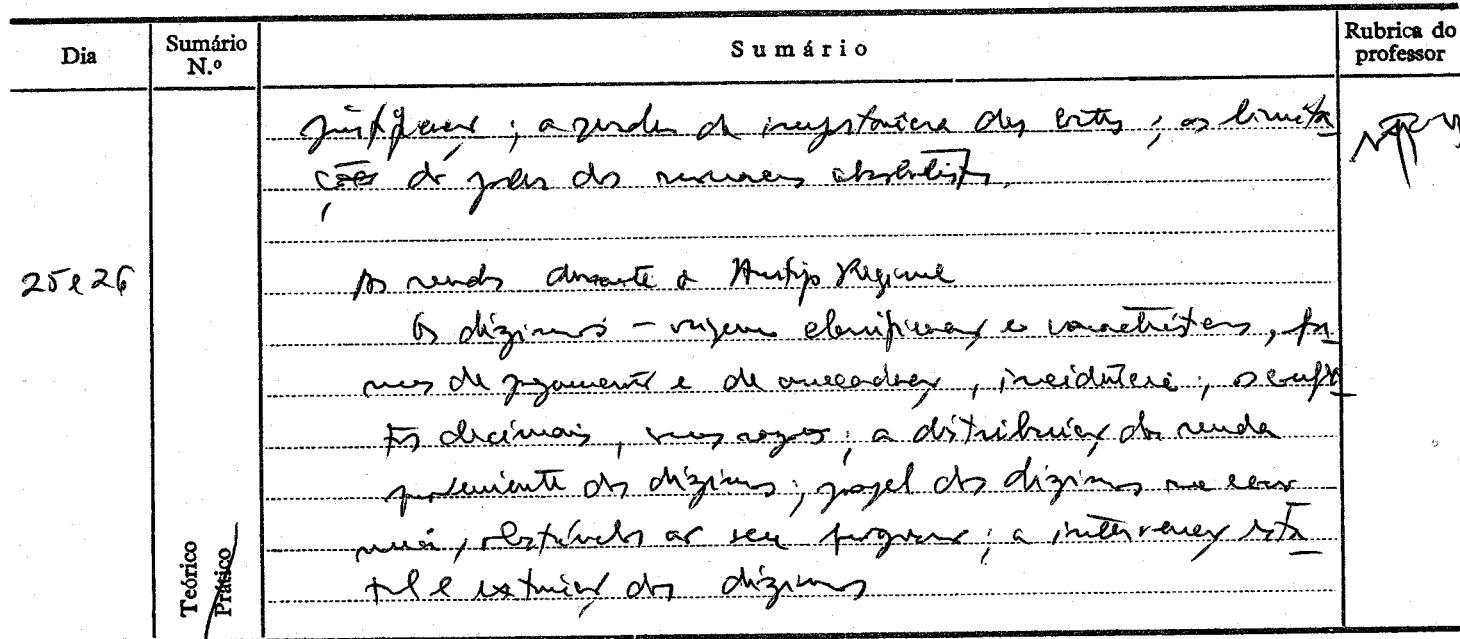 Dia
Sumário N.º
Sumário
Rubrica do professor
; a perda de importância das cortes; as limita
ções do poder dos absolutistas.
25 e 26
As rendas durante o Antigo Regime
Os dízimos – origem classificação e características, for
mas de pagamento e de arrecadação, incidência; os confli
tos decimais, suas razões; a distribuição da renda
proveniente dos dízimos; papel dos dízimos na econo
mia, obstáculo ao seu progresso; a intervenção esta
tal e extinção dos dízimos
Teórico
Prático